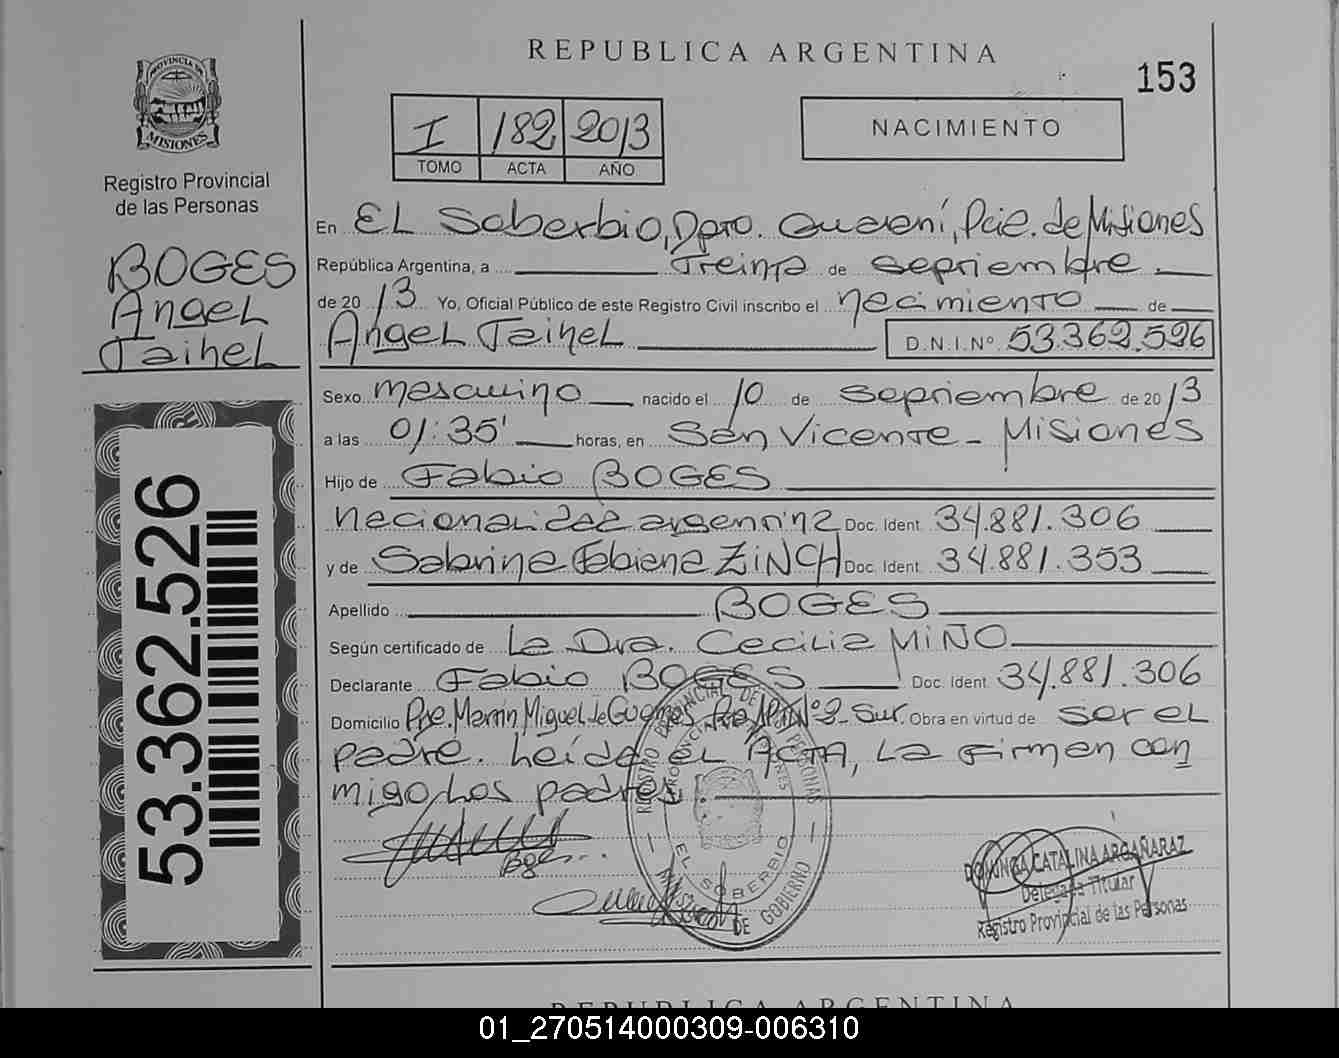 REPUBLICA ARGENTINA
153
PROVINCIA DE
MISIONES
Registro Provincial
de las Personas
I 182 2013
TOMO ACTA AÑO
NACIMIENTO
BOGES
Angel
Jaihel
53.362.526
En EL Soberbio, Dpto. Guaraní, Pcia. de Misiones
República Argentina, a Treinta de septiembre
de 2013 Yo, Oficial Público de este Registro Civil inscribo el nacimiento de
Angel Jaihel D.N.I.Nº 53.362.526
Sexo masculino nacido el 10 de septiembre de 2013
a las 01:35' horas, en San Vicente - Misiones
Hijo de Fabio BOGES
nacionalidad argentina Doc. Ident. 34.881.306
y de Sabrina Fabiana ZINCH Doc. Ident. 34.881.353
Apellido BOGES
Según certificado de La Dra. Cecilia MIÑO
Declarante Fabio BOGES Doc. Ident. 34.881.306
Domicilio Pje. Martin Miguel de Güemes Nº 2 - Sur. Obra en virtud de ser el
padre. Leída el ACTA, La firman con
migo, Los padres.
Boges
REGISTRO PROVINCIAL DE LAS PERSONAS
EL SOBERBIO
DE GOBIERNO
DOMINGA CATALINA ARGAÑARAZ
Delegada Titular
Registro Provincial de las Personas
REPUBLICA ARGENTINA
01_270514000309-006310